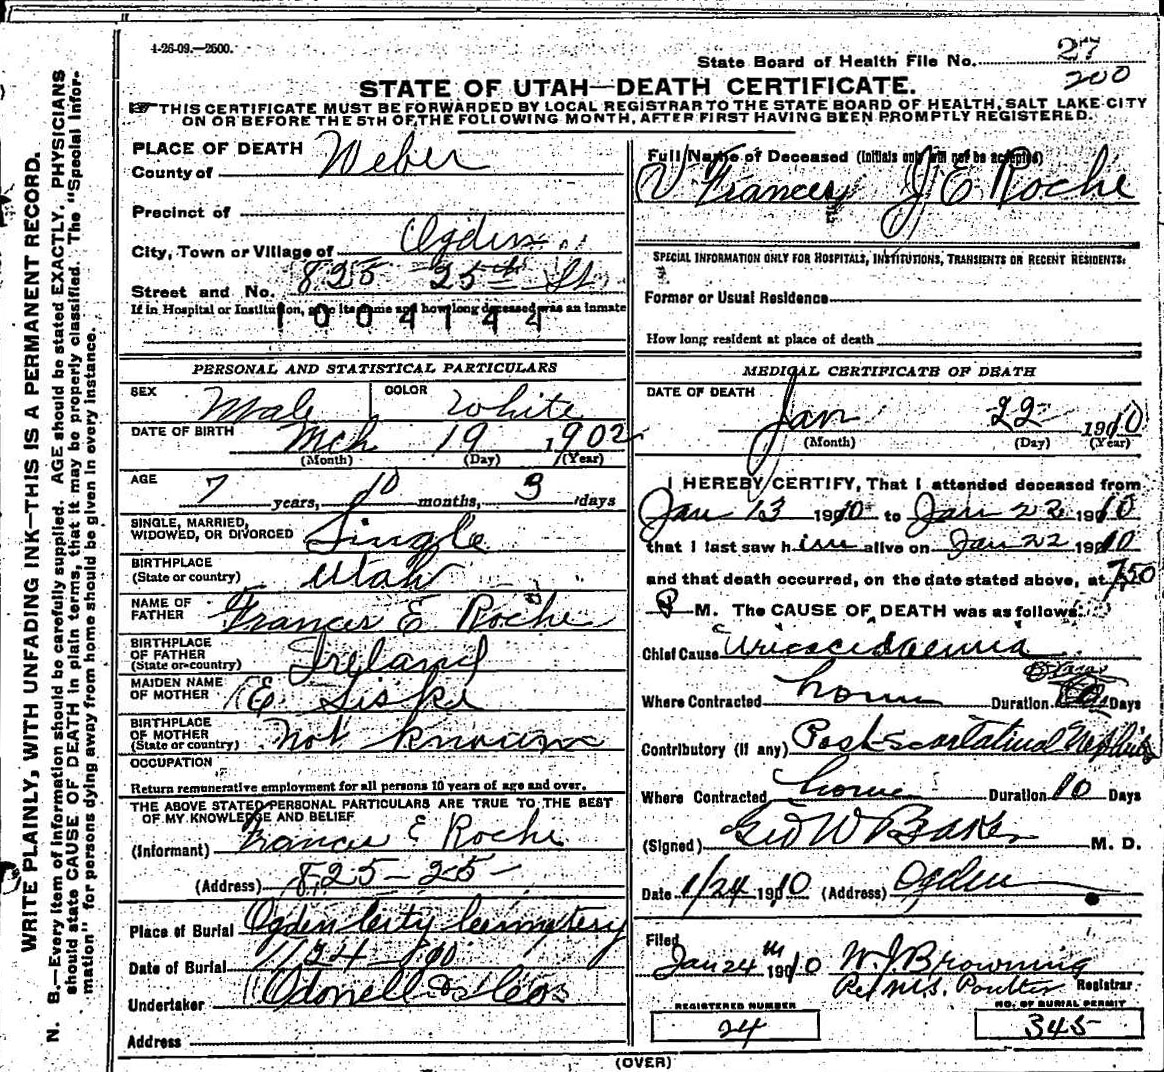 4-26-09.—2500.
State Board of Health File No. 27
200
STATE OF UTAH—DEATH CERTIFICATE.
THIS CERTIFICATE MUST BE FORWARDED BY LOCAL REGISTRAR TO THE STATE BOARD OF HEALTH, SALT LAKE CITY
ON OR BEFORE THE 5TH OF THE FOLLOWING MONTH, AFTER FIRST HAVING BEEN PROMPTLY REGISTERED.
WRITE PLAINLY, WITH UNFADING INK—THIS IS A PERMANENT RECORD.
N. B.—Every item of information should be carefully supplied. AGE should be stated EXACTLY. PHYSICIANS
should state CAUSE OF DEATH in plain terms, that it may be properly classified. The "Special Infor-
mation" for persons dying away from home should be given in every instance.
PLACE OF DEATH
County of Weber
Precinct of
City, Town or Village of Ogden
Street and No. 825 25th St
If in Hospital or Institution, give its name and how long deceased was an inmate
1004144
PERSONAL AND STATISTICAL PARTICULARS
SEX Male COLOR White
DATE OF BIRTH Mch 19 1902
(Month) (Day) (Year)
AGE 7 years, 10 months, 3 days
SINGLE, MARRIED,
WIDOWED, OR DIVORCED Single
BIRTHPLACE
(State or country) Utah
NAME OF
FATHER Frances E Roche
BIRTHPLACE
OF FATHER
(State or country) Ireland
MAIDEN NAME
OF MOTHER E
BIRTHPLACE
OF MOTHER
(State or country) Not Known
OCCUPATION
Return remunerative employment for all persons 10 years of age and over.
THE ABOVE STATED PERSONAL PARTICULARS ARE TRUE TO THE BEST
OF MY KNOWLEDGE AND BELIEF
(Informant) Frances E Roche
(Address) 825-25-
Place of Burial Ogden City Cemetery
Date of Burial 1/24-
Undertaker Odonell &
Address
Full Name of Deceased (Initials only will not be accepted)
Frances J E Roche
SPECIAL INFORMATION ONLY FOR HOSPITALS, INSTITUTIONS, TRANSIENTS OR RECENT RESIDENTS.
Former or Usual Residence
How long resident at place of death
MEDICAL CERTIFICATE OF DEATH
DATE OF DEATH
Jan 22 1910
(Month) (Day) (Year)
I HEREBY CERTIFY, That I attended deceased from
Jan 13 1910 to Jan 22 1910
that I last saw him alive on Jan 22 1910
and that death occurred, on the date stated above, at 7:50
P M. The CAUSE OF DEATH was as follows:
Chief Cause Uricacidaemia
Where Contracted home Duration Days
Contributory (if any) Post-scarlatinal Nephritis
Where Contracted home Duration 10 Days
(Signed) Geo W Baker M. D.
Date 1/24 1910 (Address) Ogden
Filed
Jan 24th 1910 W. J. Browning
Registrar
Per M.S. Poulter
REGISTERED NUMBER
24
NO. OF BURIAL PERMIT
345
(OVER)